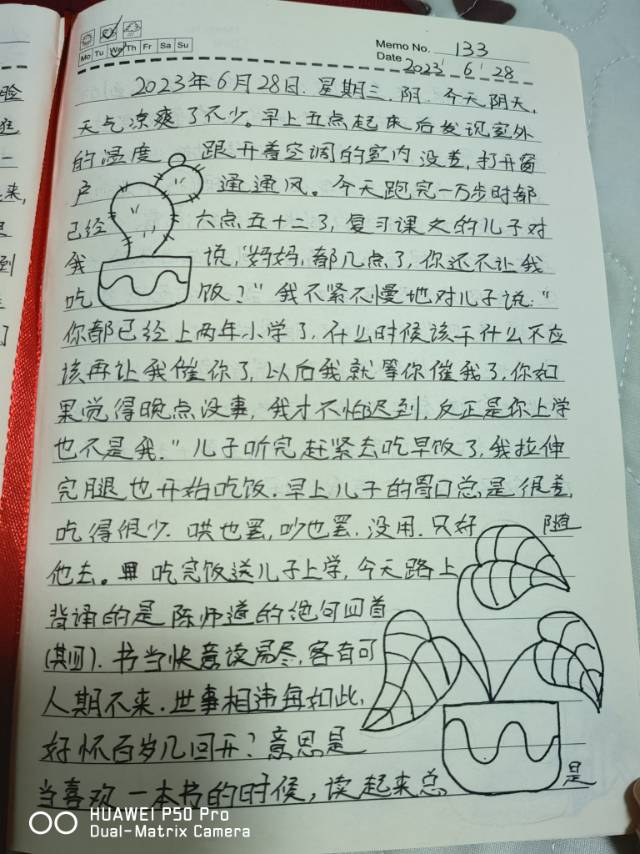 Mo Tu We Th Fr Sa Su
Memo No. 133
Date 2023 6 28
2023年6月28日. 星期三. 阴. 今天阴天,
天气凉爽了不少。早上五点起床后发现室外
的温度 跟开着空调的室内没差, 打开窗
户 通通风。今天跑完一万步时都
已经 六点五十二了, 复习课文的儿子对
我 说, "妈妈, 都几点了, 你还不让我
吃 饭?" 我不紧不慢地对儿子说: "
你都已经上两年小学了, 什么时候该干什么不应
该再让我催你了, 以后我就等你催我了, 你如
果觉得晚点没事, 我才不怕迟到, 反正是你上学
也不是我." 儿子听完赶紧去吃早饭了, 我拉伸
完腿也开始吃饭. 早上儿子的胃口总是很差,
吃得很少. 哄也罢, 吵也罢, 没用. 只好 随
他去。 吃完饭送儿子上学, 今天路上
背诵的是陈师道的绝句四首
(其四). 书当快意读易尽, 客有可
人期不来. 世事相违每如此,
好怀百岁几回开? 意思是
当喜欢一本书的时候, 读起来总 是
验
来,
到
HUAWEI P50 Pro
Dual-Matrix Camera